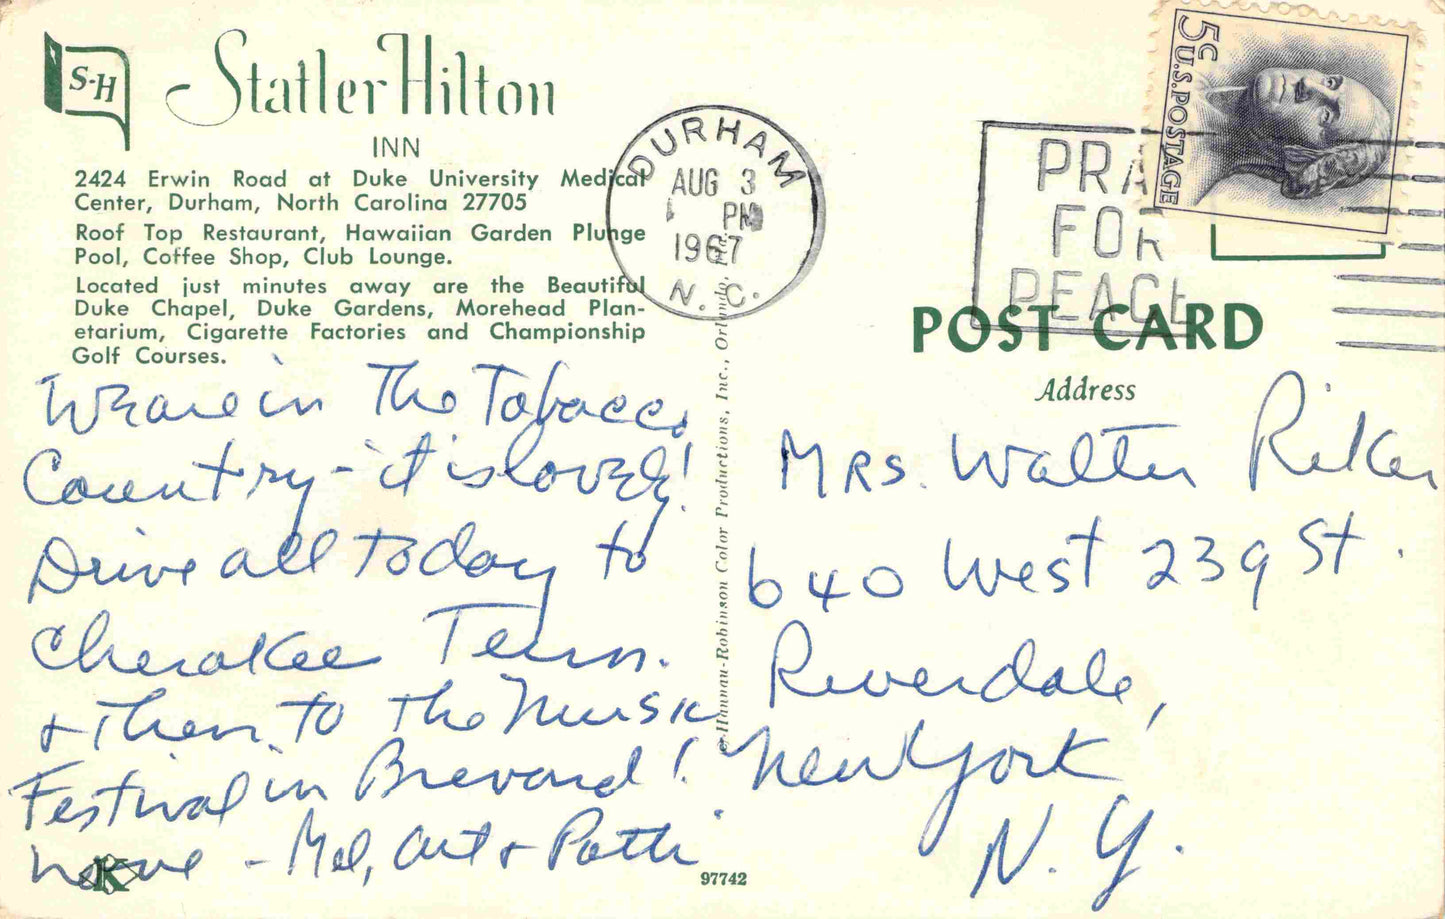 S-H
Statler Hilton
INN
2424 Erwin Road at Duke University Medical
Center, Durham, North Carolina 27705
Roof Top Restaurant, Hawaiian Garden Plunge
Pool, Coffee Shop, Club Lounge.
Located just minutes away are the Beautiful
Duke Chapel, Duke Gardens, Morehead Plan-
etarium, Cigarette Factories and Championship
Golf Courses.
We are in the Tobacco
Country - it is lovely!
Drive all today to
Cherokee Tenn.
+ then to the Music
Festival in Brevard!
- Mel, Art + Patti
K
DURHAM
AUG 3
PM
1967
N. C.
PRA
FOR
PEACE
5c U.S. POSTAGE
POST CARD
Address
Mrs. Walter Riker
640 West 239 St.
Riverdale,
New York
N. Y.
© Hannau-Robinson Color Productions, Inc., Orlando,
97742